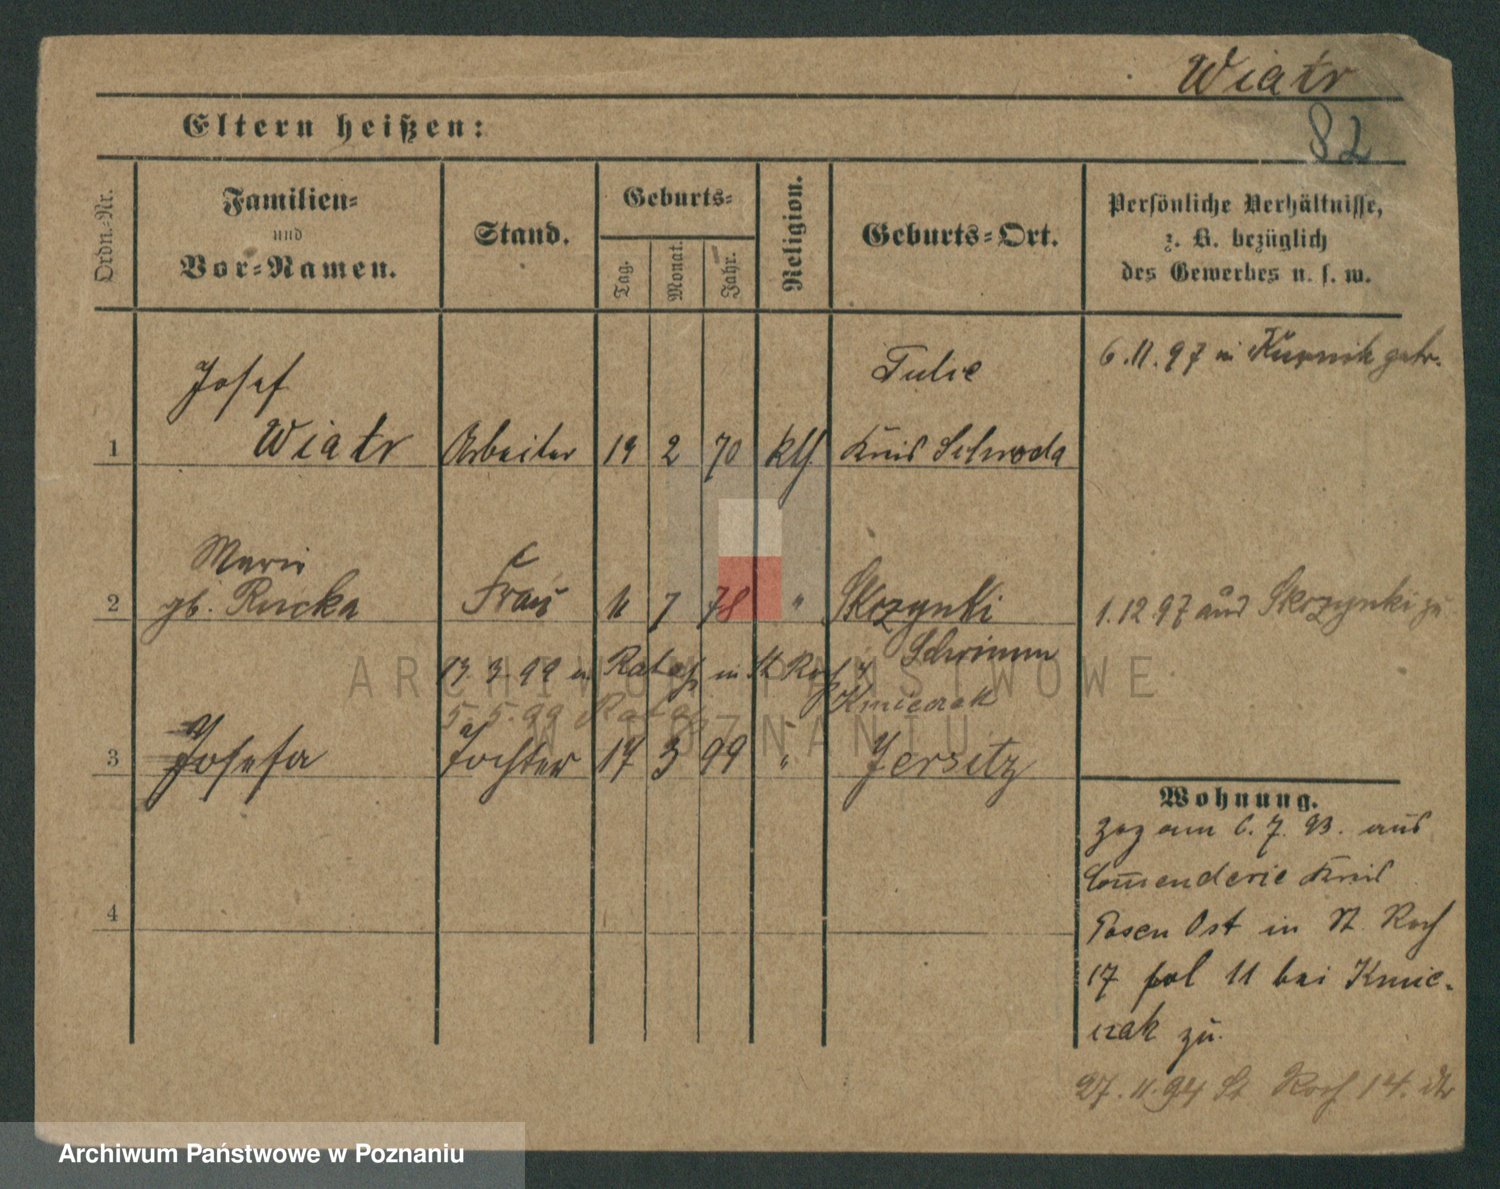 Wiatr
82
Eltern heißen:
Ordn.-Nr.
Familien-
und
Vor-Namen.
Stand.
Geburts-
Tag.
Monat.
Jahr.
Religion.
Geburts-Ort.
Persönliche Verhältnisse,
z. B. bezüglich
des Gewerbes u. s. w.
Josef
Tulce
6.11.97 in Kurnik getr.
1 Wiatr Arbeiter 19 2 70 kth Kreis Schroda
Marie
2 gb. Rucka Frau 11 7 78 " Skrzynki
1.12.97 aus Skrzynki zu
Schrimm
13.3.99 n Rataj in St Roch 4
Kmieczak
5.5.99 Rataj
3 Josefa Tochter 17 3 99 " Jersitz
Wohnung.
zog am 6.7.93. aus
Commenderie Kreis
Posen Ost in St. Roch
17 pol 11 bei Kmie-
czak zu.
4
27.11.94 St Roch 14.
ARCHIWUM PAŃSTWOWE
W POZNANIU
Archiwum Państwowe w Poznaniu